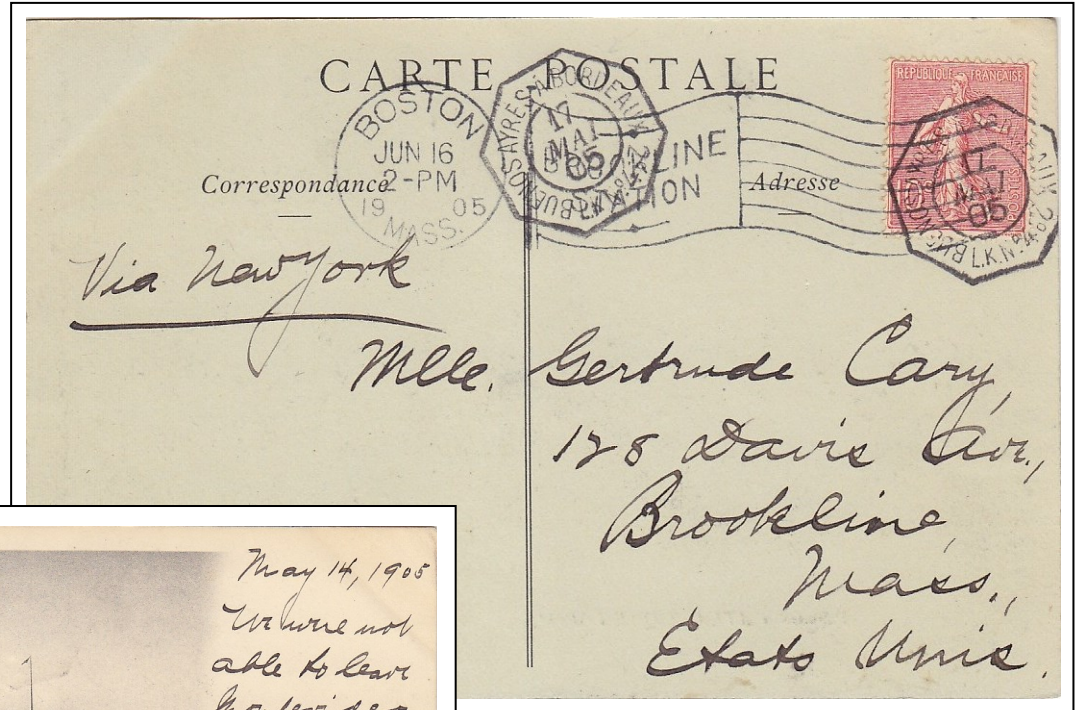 CARTE POSTALE
BOSTON
JUN 16
2-PM
19 05
MASS.
BUENOS AYRES A BORDEAUX
17
MAI
05
L.K. Nº
LINE
REPUBLIQUE FRANÇAISE
POSTES
17
MAI
05
L.K. Nº
Correspondance
Adresse
Via New York
Mlle. Gertrude Cary,
128 Davis Ave.,
Brookline,
Mass.,
Etats Unis.
May 14, 1905
We were not
able to leave
Montevideo